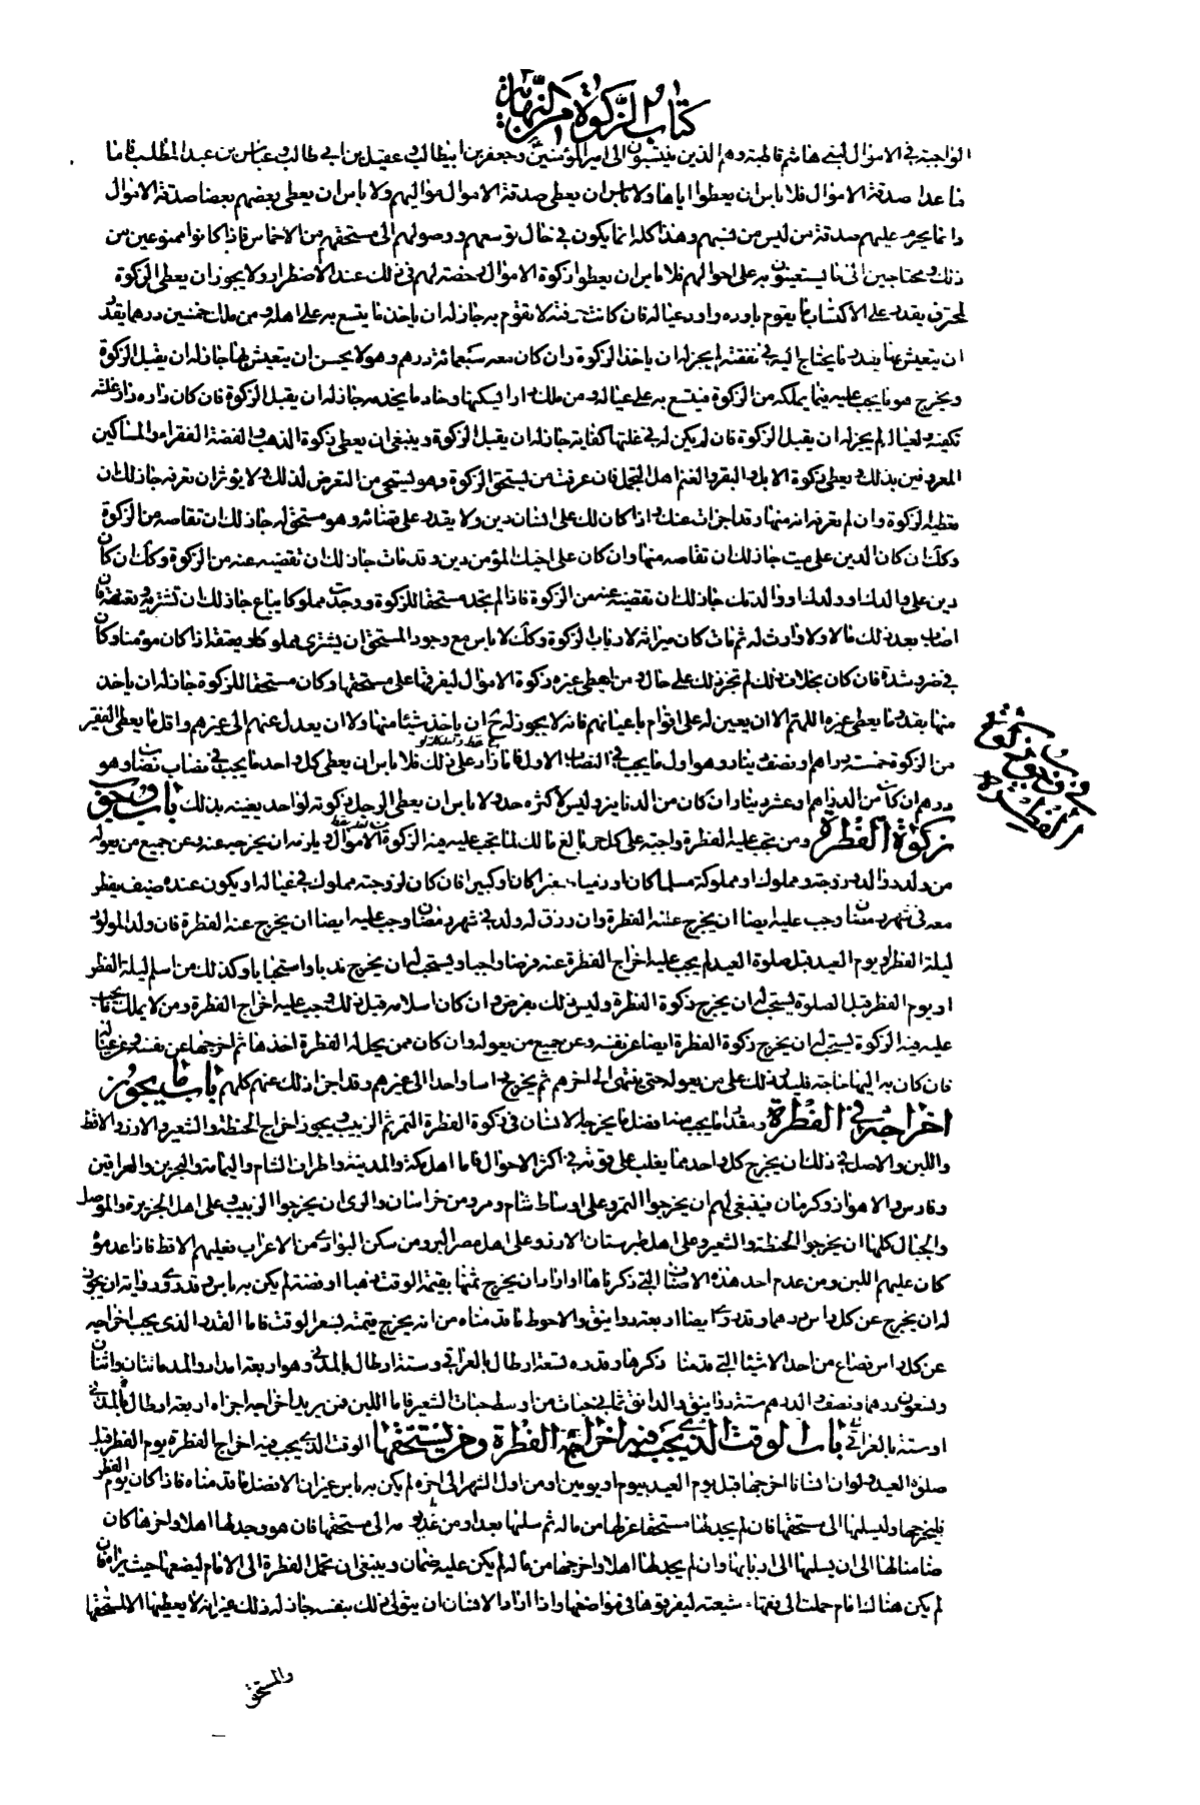 كتاب الزكوة من النهاية
الواجبة في الاموال لبنى هاشم قاطبة وهم الذين ينتسبون الى امير المؤمنين وجعفر بن ابيطالب وعقيل بن ابي طالب وعباس بن عبد المطلب فاما
ما عدا صدقة الاموال فلا باس ان يعطوا اياها ولا باس ان يعطى صدقة الاموال مواليهم ولا باس ان يعطى بعضهم بعضا صدقة الاموال
وانما يحرم عليهم صدقة من ليس من نسبهم وهذا كله انما يكون في حال توسعهم ووصولهم الى مستحقهم من الاخماس فاذا كانوا ممنوعين من
ذلك ومحتاجين الى ما يستعينون به على احوالهم فلا باس ان يعطوا زكوة الاموال رخصة لهم في ذلك عند الاضطرار ولا يجوز ان يعطى الزكوة
لمحترف يقدر على الاكتساب ما يقوم باوده واود عياله فان كانت حرفته لا تقوم به جاز له ان ياخذ ما يتسع به على اهله ومن ملك خمسين درهما يقدر
ان يتعيش بها بقدر ما يحتاج اليه في نفقته لم يجز له ان ياخذ الزكوة وان كان معه سبعمائة درهم وهو لا يحسن ان يتعيش بها جاز له ان يقبل الزكوة
ويخرج هو ما يجب عليه فيما يملكه من الزكوة فيتسع به على عياله ومن ملك دارا يسكنها وخادما يخدمه جاز له ان يقبل الزكوة فان كان داره دار غلة
تكفيه ولعياله لم يجز له ان يقبل الزكوة فان لم يكن له في غلتها كفاية جاز له ان يقبل الزكوة وينبغي ان يعطى زكوة الذهب والفضة الفقراء والمساكين
المعروفين بذلك ويعطى زكوة الابل والبقر والغنم اهل التجمل فان عرفت من يستحق الزكوة وهو يستحيي من التعرض لذلك ولا يؤثر ان تعرفه جاز لك ان
تعطيه الزكوة وان لم تعرفه انه منها وقد اجزات عنك واذا كان لك على انسان دين ولا يقدر على قضائه وهو مستحق له جاز لك ان تقاصه من الزكوة
وكك ان كان الدين على ميت جاز لك ان تقاصه منها وان كان على اخيك المؤمن دين وقد مات جاز لك ان تقضيه عنه من الزكوة وكك ان كان
دين على والدك او ولدك او والدتك جاز لك ان تقضيه عنه من الزكوة فاذا لم تجد مستحقا للزكوة ووجدت مملوكا يباع جاز لك ان تشتريه وتعتقه فان
اصاب بعد ذلك مالا ولا وارث له ثم مات كان ميراثه لارباب الزكوة وكك لا باس مع وجود المستحق ان يشترى مملوكا ويعتقه اذا كان مؤمنا وكان
في ضر وشدة فان كان بخلاف ذلك لم تجز ذلك على حال ومن اعطى غيره زكوة الاموال ليفرقها على مستحقها وكان مستحقا للزكوة جاز له ان ياخذ
منها بقدر ما يعطى غيره اللهم الا ان يعين له على اقوام باعيانهم فانه لا يجوز له ح ان ياخذ شيئا منها ولا ان يعدل عنهم الى غيرهم واقل ما يعطى الفقير
من الزكوة خمسة دراهم او نصف دينار وهو اول ما يجب في النصاب الاول فاما ما زاد على ذلك فلا باس ان يعطى كل واحد ما يجب في نصاب نصاب وهو
درهم ان كان من الدراهم او عشر دينار ان كان من الدنانير وليس لاكثره حد ولا باس ان يعطى الرجل زكوته لواحد يغنيه بذلك باب وجوب
زكوة الفطرة ومن تجب عليه الفطرة واجبة على كل حر بالغ مالك لما تجب عليه فيه الزكوة الاموال ويلزمه ان يخرجه عنه وعن جميع من يعوله
من ولد ووالد وزوجة ومملوك او مملوكة مسلما كان او ذميا صغيرا كان او كبيرا فان كان لزوجته مملوك في عياله او يكون عنده ضيف يفطر
معه في شهر رمضان وجب عليه ايضا ان يخرج عنه الفطرة وان رزق له ولد في شهر رمضان وجب عليه ايضا ان يخرج عنه الفطرة فان ولد المولود
ليلة الفطر او يوم العيد قبل صلوة العيد لم يجب عليه اخراج الفطرة عنه فرضا واجبا ويستحب له ان يخرج ندبا واستحبابا وكذلك من اسلم ليلة الفطر
او يوم الفطر قبل الصلوة يستحب له ان يخرج زكوة الفطرة وليس ذلك بفرض وان كان اسلامه قبل ذلك وجب عليه اخراج الفطرة ومن لا يملك ما يجب
عليه فيه الزكوة يستحب له ان يخرج زكوة الفطرة ايضا عن نفسه وعن جميع من يعوله وان كان ممن يحل له الفطرة اخذها ثم اخرجها عن نفسه وعن عياله
فان كان به اليها حاجة فليدر ذلك على من يعوله حتى ينتهى الى اخرهم ثم يخرج راسا واحدا الى غيرهم وقد اجزا ذلك عنهم كلهم باب ما يجوز
اخراجه في الفطرة ومقدار ما يجب منها افضل ما يخرجه الانسان في زكوة الفطرة التمر ثم الزبيب ويجوز اخراج الحنطة والشعير والارز والاقط
واللبن والاصل في ذلك ان يخرج كل واحد مما يغلب على قوته في اكثر الاحوال فاما اهل مكة والمدينة واطراف الشام واليمامة والبحرين والعراقين
وفارس والاهواز وكرمان فينبغي لهم ان يخرجوا التمر وعلى اوساط شام ومرو من خراسان والرى ان يخرجوا الزبيب وعلى اهل الجزيرة والموصل
والجبال كلها ان يخرجوا الحنطة والشعير وعلى اهل طبرستان الارز وعلى اهل مصر البر ومن سكن البوادي من الاعراب فعليهم الاقط فاذا عدموه
كان عليهم اللبن ومن عدم احد هذه الاصناف التي ذكرناها او اراد ان يخرج ثمنها بقيمة الوقت ذهبا او فضة لم يكن به باس وقد روى رواية انه يجوز
له ان يخرج عن كل راس درهما وقد روى ايضا اربعة دوانيق والاحوط ما قدمناه من انه يخرج قيمته بسعر الوقت فاما القدر الذي يجب اخراجه
عن كل راس فصاع من احد الاشياء التي قدمنا ذكرها وقدره تسعة ارطال بالعراقي وستة ارطال بالمدني وهو اربعة امداد والمد مائتان واثنان
وتسعون درهما ونصف والدرهم ستة دوانيق والدانق ثماني حبات من اوسط حبات الشعير فاما اللبن فمن يريد اخراجه اجزاه اربعة ارطال بالمدني
او ستة بالعراقي باب الوقت الذي يجب فيه اخراج الفطرة ومن يستحقها الوقت الذي يجب فيه اخراج الفطرة يوم الفطر قبل
صلوة العيد ولو ان انسانا اخرجها قبل يوم العيد بيوم او يومين او من اول الشهر الى اخره لم يكن به باس غير ان الافضل ما قدمناه فاذا كان يوم الفطر
فليخرجها وليسلمها الى مستحقها فان لم يجد لها مستحقا عزلها من ماله ثم سلمها بعد او من غد يومه الى مستحقها فان هو وجد لها اهلا واخرها كان
ضامنا لها الى ان يسلمها الى اربابها وان لم يجد لها اهلا واخرجها من ماله لم يكن عليه ضمان وينبغي ان تحمل الفطرة الى الامام ليضعها حيث يراه فان
لم يكن هناك امام حملت الى فقهاء شيعته ليفرقوها في مواضعها واذا اراد الانسان ان يتولى ذلك بنفسه جاز له ذلك غير انه لا يعطيها الا لمستحقها
في وجوب زكوة
الفطرة
والمستحق